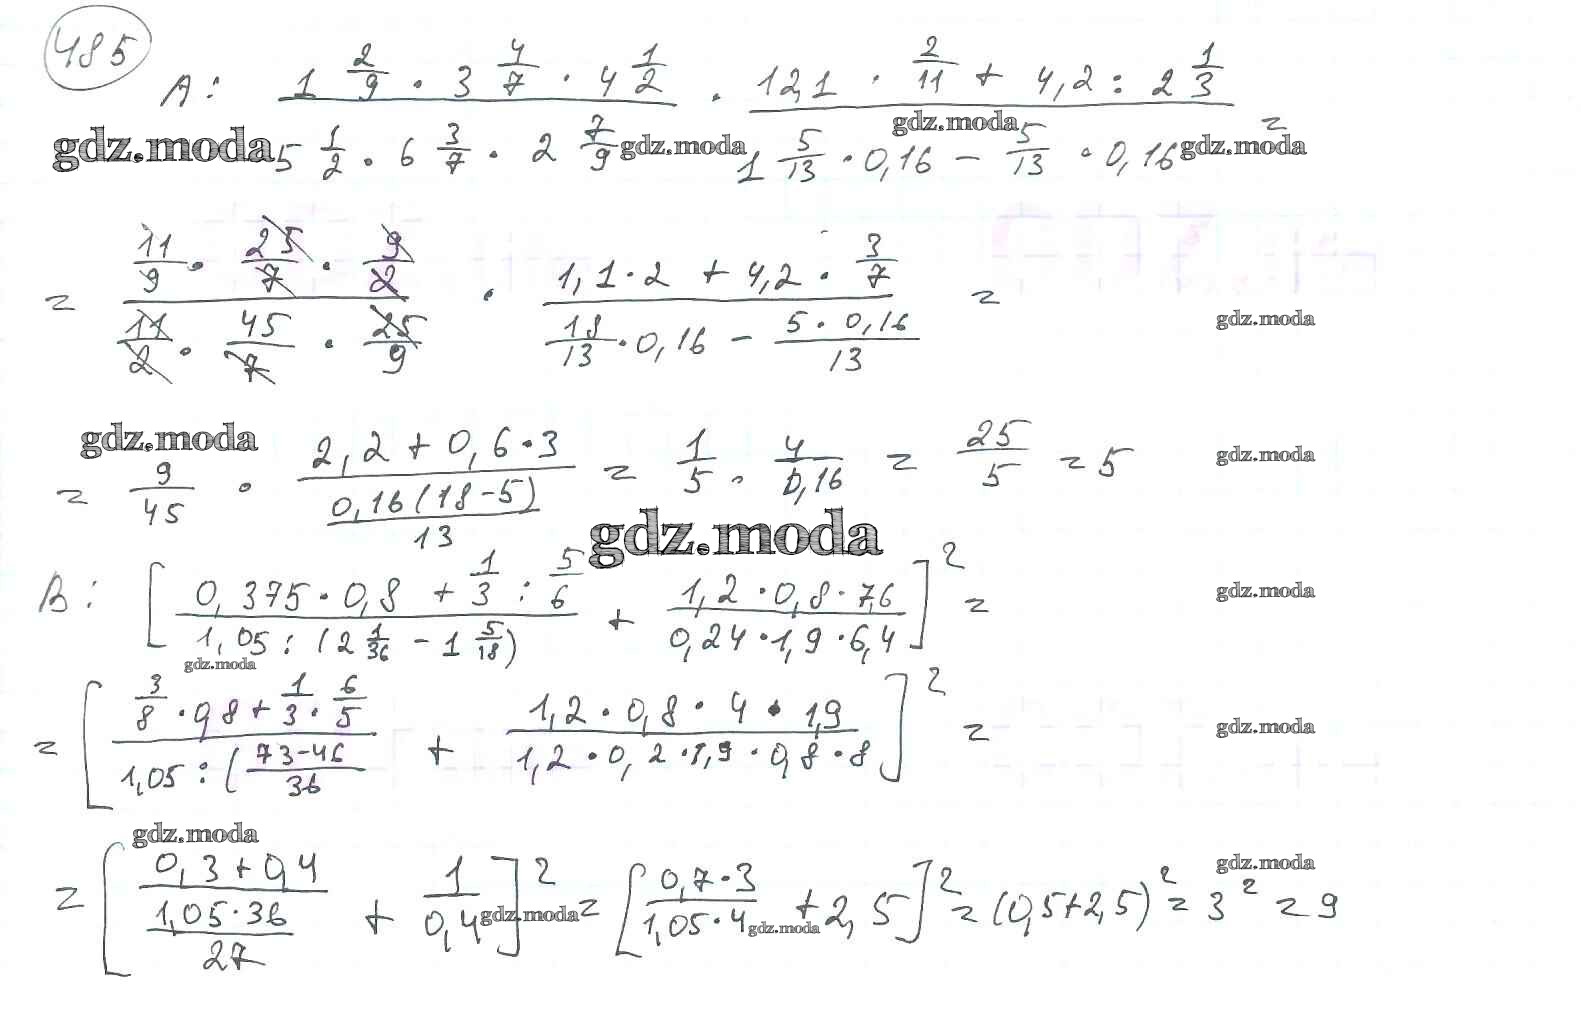 485
A: (1 2/9 · 3 4/7 · 4 1/2) / (5 1/2 · 6 3/7 · 2 7/9) · (12,1 · 2/11 + 4,2 : 2 1/3) / (1 5/13 · 0,16 − 5/13 · 0,16) =
gdz.moda gdz.moda gdz.moda gdz.moda
= (11/9 · 25/7 · 9/2) / (11/2 · 45/7 · 25/9) · (1,1·2 + 4,2 · 3/7) / (18/13 · 0,16 − 5·0,16/13) =
gdz.moda
gdz.moda
= 9/45 · (2,2 + 0,6·3) / (0,16(18−5)/13) = 1/5 · 4/0,16 = 25/5 = 5
gdz.moda
gdz.moda
B: [(0,375·0,8 + 1/3 : 5/6) / (1,05 : (2 1/36 − 1 5/18)) + (1,2·0,8·7,6) / (0,24·1,9·6,4)]² =
gdz.moda
gdz.moda
= [(3/8 · 0,8 + 1/3 · 6/5) / (1,05 : (73−46/36) + (1,2·0,8·4·1,9) / (1,2·0,2·1,9·0,8·8)]² =
gdz.moda
gdz.moda
= [(0,3+0,4) / (1,05·36/27) + 1/0,4]² = [0,7·3/1,05·4 + 2,5]² = (0,5+2,5)² = 3² = 9
gdz.moda gdz.moda gdz.moda